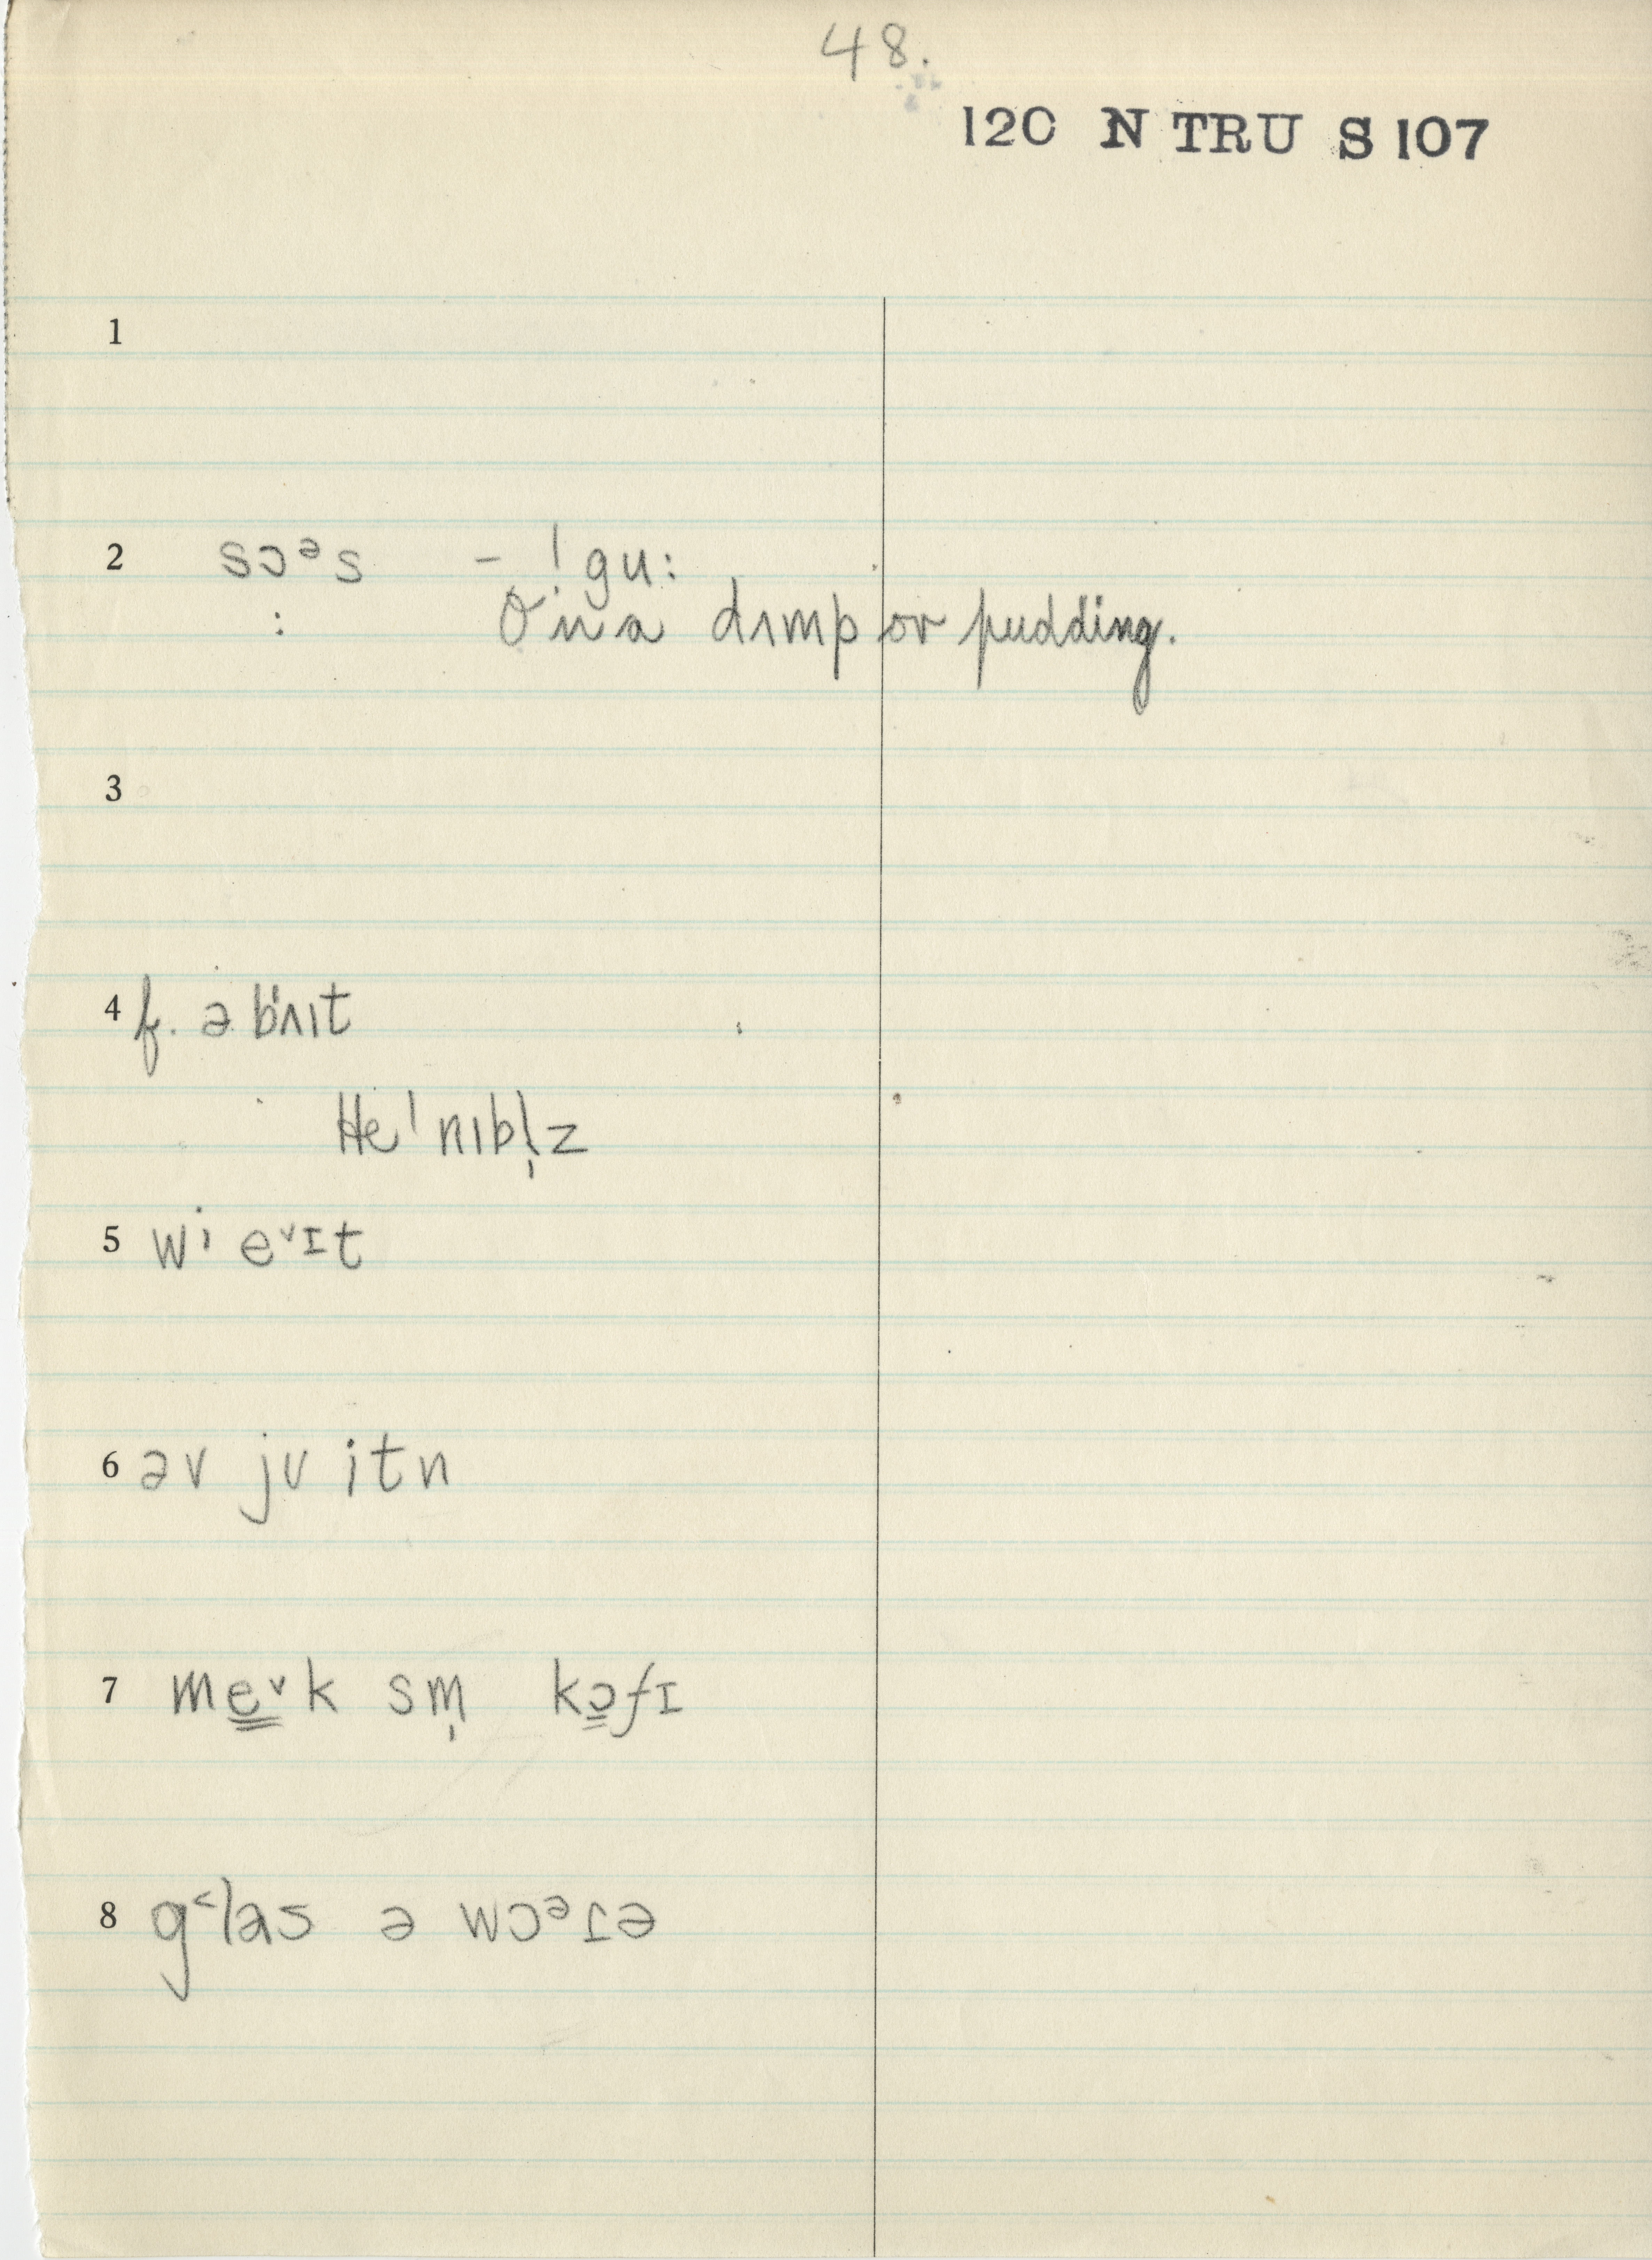 48.
120 N TRU S 107
1
2 sɔᵊs – ! gu:
: On a dʌmp or pudding.
3
4 f. ə bʌɪt
He ˈnɪbl̩z
5 wi eᵛɪt
6 əv ju itn
7 me̳ᵛk sm̩ kɔ̳fɪ
8 g˂las ə wɔᵊɾə